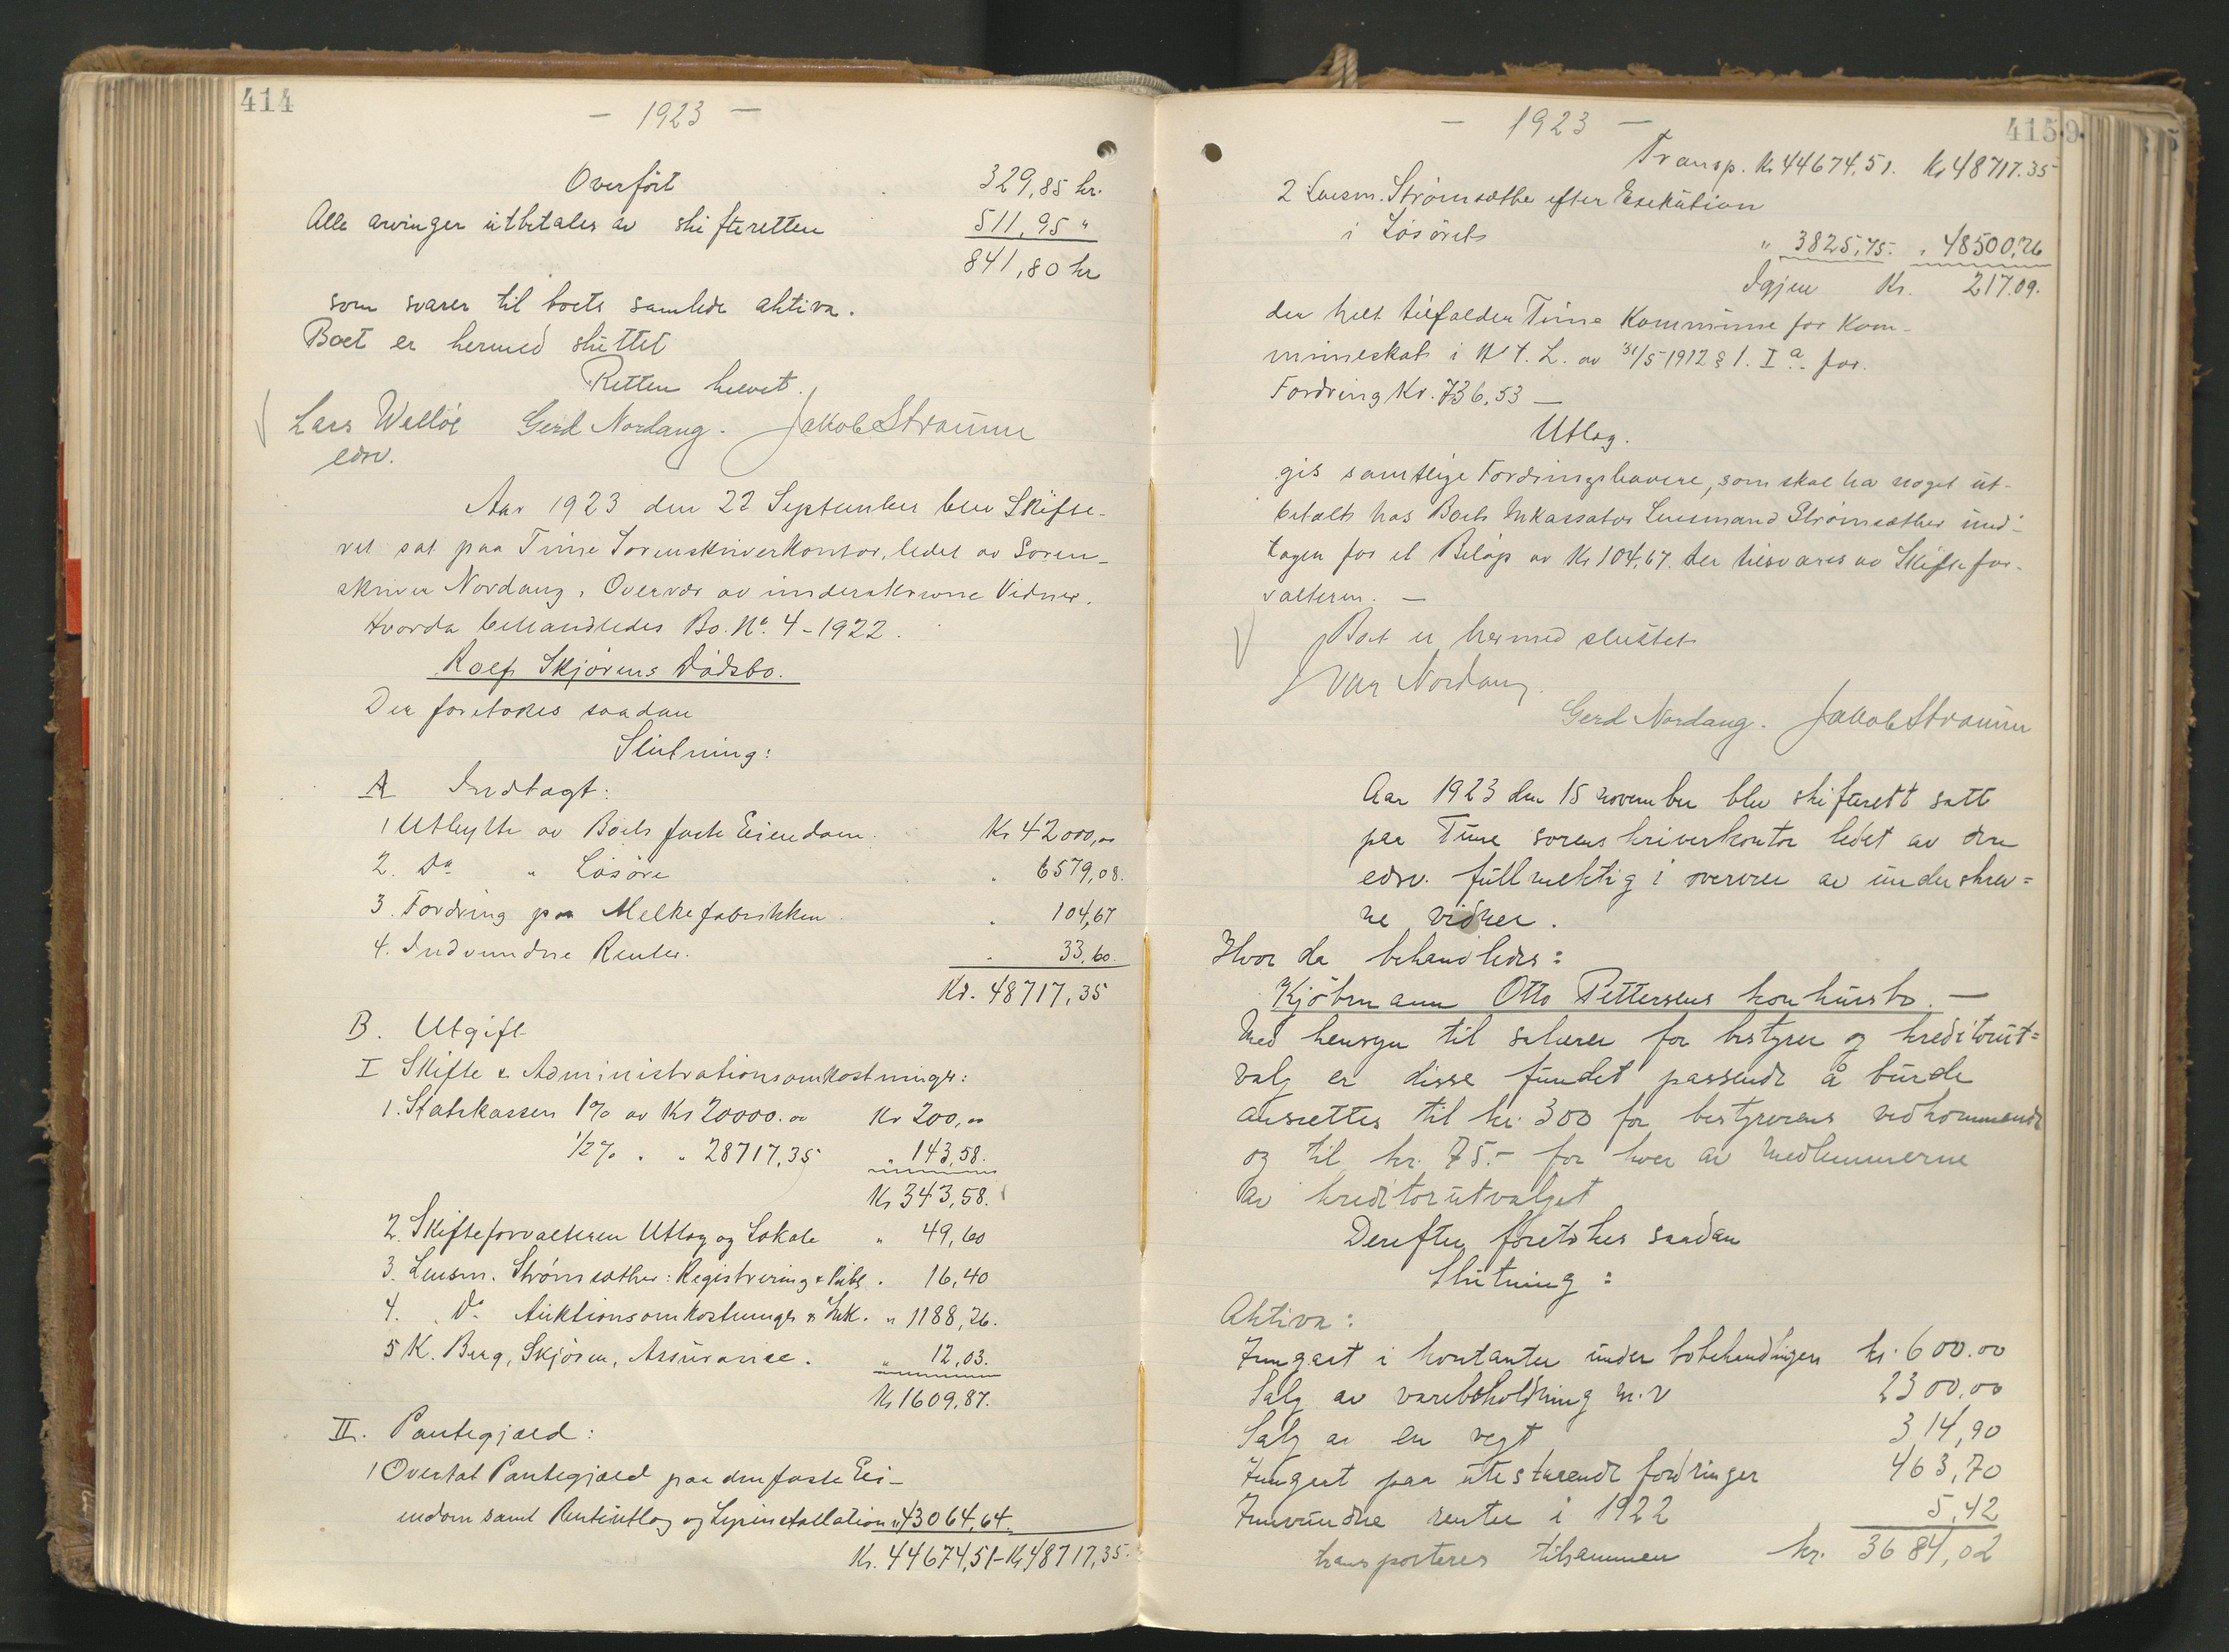 414
- 1923 -
Overført 329,85 kr.
Alle arvinger utbetales av skifteretten 511,95 "
841,80 kr
som svarer til boets samlede aktiva.
Boet er hermed sluttet
Retten hevet.
Lars Welløe Gerd Nordang. Jakob Straume
edsv.
Aar 1923 den 22 September blev Skifte-
ret sat paa Tune Sorenskriverkontor, ledet av Soren-
skriver Nordang, Overvær av underskrevne Vidner.
Hvorda behandledes Bo. No. 4-1922.
Rolf Skjørens Dødsbo.
Der foretokes saadan
Slutning:
A Indtægt:
1 Utbytte av Boets faste Eiendom. Kr 42000,00
2. Do " Løsøre " 6579,08.
3. Fordring paa Melkefabrikken. " 104,67
4. Indvundne Renter. " 33,60.
Kr. 48717,35
B. Utgift
I Skifte & Administrationsomkostninger:
1. Statskassen 1% av Kr 20000.00 Kr 200,00
1/2% " " 28717,35 " 143,58.
Kr 343,58.
2. Skifteforvalteren Utlæg og Lokale " 49,60
3. Lensm. Strømsæther: Registrering & Publ. " 16,40
4. Do Auktionsomkostninger & Ink. " 1188,26.
5 K. Berg, Skjøren, Assurance. " 12,03.
Kr 1609,87.
II. Pantegjæld:
1 Overtat Pantegjæld paa den faste Ei-
endom samt Renteutlæg og Lysinstallation " 43064,64.
Kr. 44674,51 - Kr 48717,35.
415
- 1923 -
Transp. Kr 44674,51. Kr 48717.35
2 Lensm. Strømsæther efter Exekution
i Løsøret " 3825,75. " 48500,26
Igjen Kr. 217.09.
der helt tilfalder Tune Kommune for Kom-
muneskat i H t. L. av 31/5 1912 § 1. I a. for.
Fordring Kr. 736,53 —
Utlæg.
gis samtlige Fordringshavere, som skal ha noget ut-
betalt hos Boets Inkassator Lensmand Strømsæther und-
tagen for et Beløp av Kr 104,67. der tilsvares av Skiftefor-
valteren. —
Boet er hermed sluttet
Ivar Nordang.
Gerd Nordang. Jakob Straume
Aar 1923 den 15 november blev skifterett satt
paa Tune sorenskriverkontor ledet av den
edsv. fullmektig i overvær av underskrev=
ne vidner.
Hvor da behandledes:
Kjøbmann Otto Pettersens konkursbo. —
Med hensyn til salærer for bestyrer og kreditorut=
valg er disse fundet passende å burde
ansættes til kr. 300 for bestyrerens vedkommende
og til kr. 75.- for hver av medlemmerne
av kreditorutvalget
Derefter foretokes saadan
Slutning:
Aktiva:
Inngaat i kontanter under bobehandlingen kr. 600.00
Salg av varebeholdning m.v 2300.00
Salg av en vegt 314,90
Inngaat paa utestaaende fordringer 463,70
Innvundne renter i 1922 5,42
transporteres tilsammen kr. 3684,02